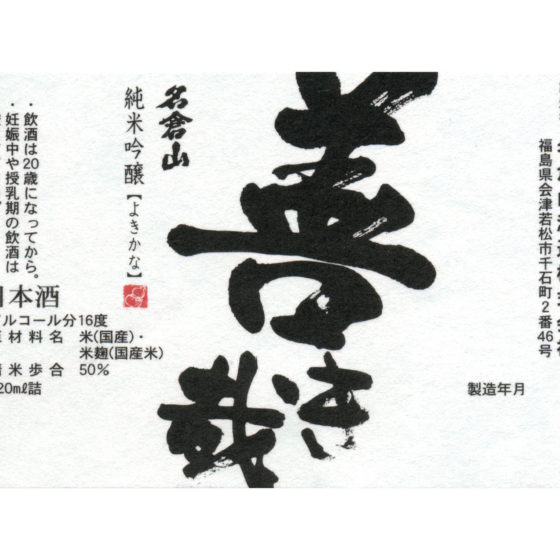 善き哉
名倉山
純米吟醸【よきかな】
・飲酒は20歳になってから。
・妊娠中や授乳期の飲酒は
本酒
ルコール分16度
材料名 米(国産)・
米麹(国産米)
米歩合 50%
20mℓ詰
福島県会津若松市千石町2番46号
製造年月